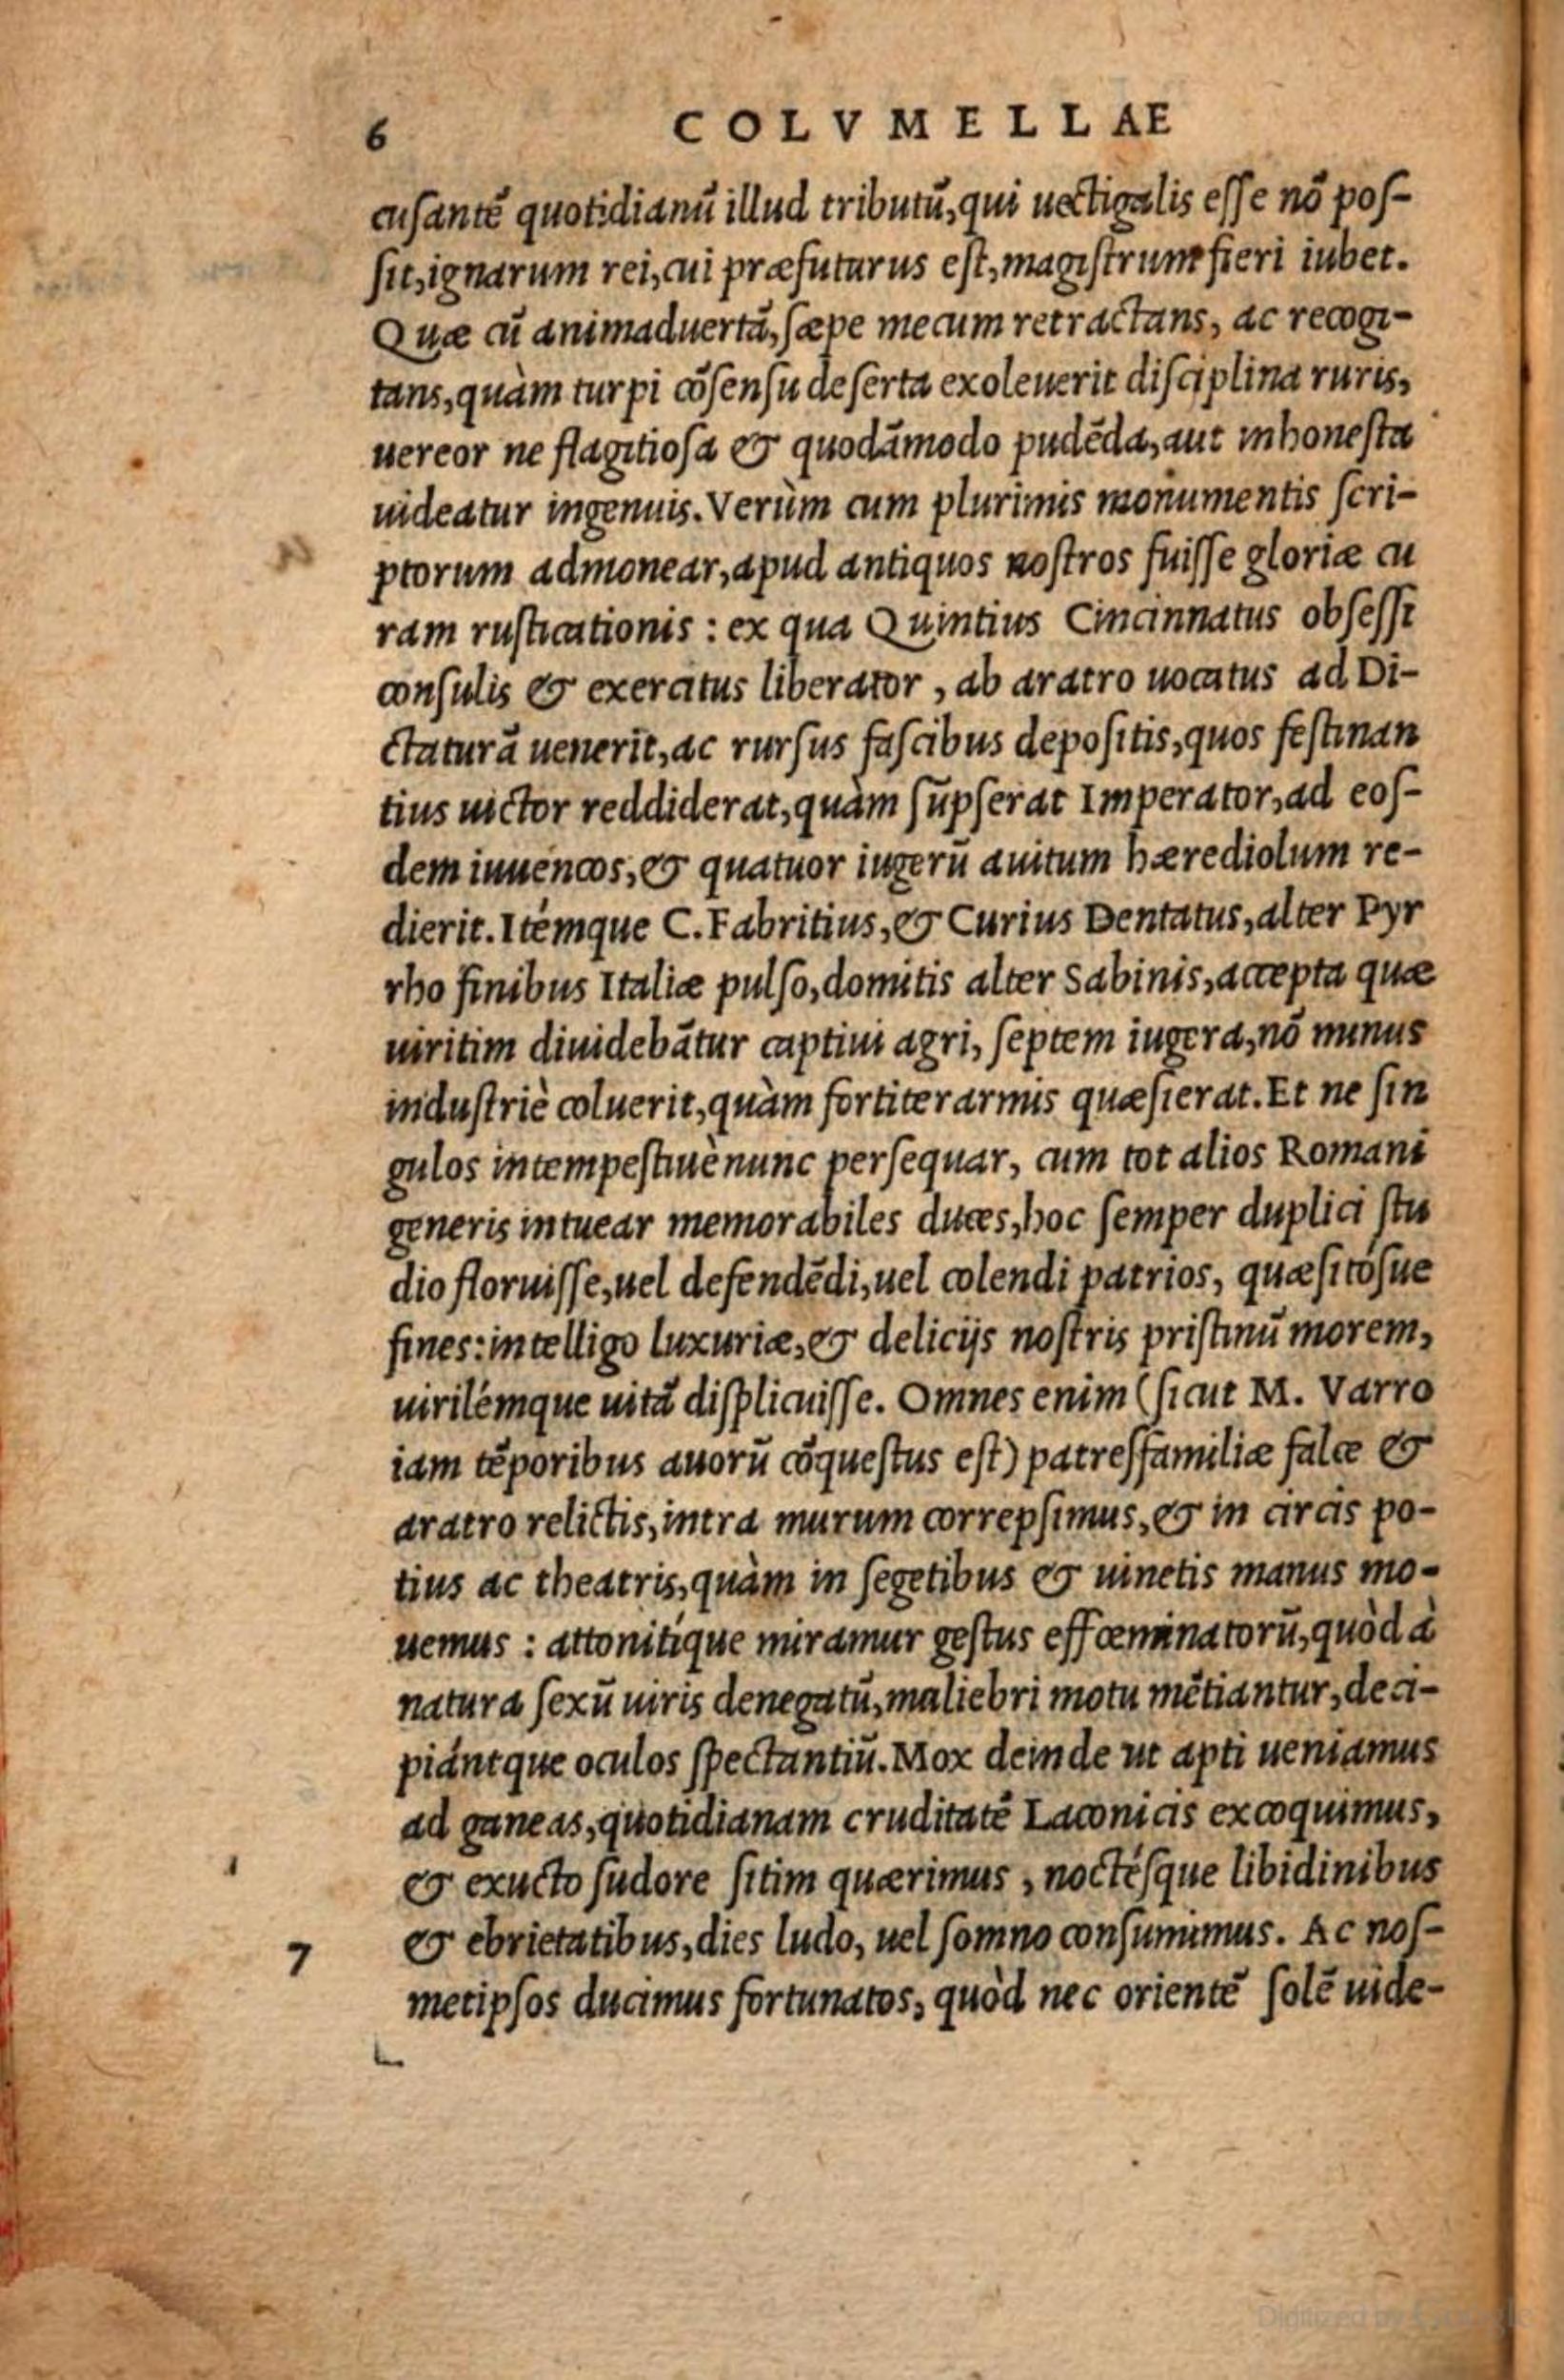 6 COLVMELLAE
cusantē quotidianū illud tributū, qui uectigalis esse nō pos-
sit, ignarum rei, cui præfuturus est, magistrum fieri iubet.
Quæ cū animaduertā, sæpe mecum retractans, ac recogi-
tans, quàm turpi cōsensu deserta exoleuerit disciplina ruris,
uereor ne flagitiosa & quodāmodo pudēda, aut inhonesta
uideatur ingenuis. Verùm cum plurimis monumentis scri-
ptorum admonear, apud antiquos nostros fuisse gloriæ cu
ram rusticationis : ex qua Quintius Cincinnatus obsessi
consulis & exercitus liberator , ab aratro uocatus ad Di-
ctaturā uenerit, ac rursus fascibus depositis, quos festinan
tius uictor reddiderat, quàm sūpserat Imperator, ad eos-
dem iuuencos, & quatuor iugerū auitum hærediolum re-
dierit. Itémque C. Fabritius, & Curius Dentatus, alter Pyr
rho finibus Italiæ pulso, domitis alter Sabinis, accepta quæ
uiritim diuidebātur captiui agri, septem iugera, nō minus
industriè coluerit, quàm fortiter armis quæsierat. Et ne sin
gulos intempestiuè nunc persequar, cum tot alios Romani
generis intuear memorabiles duces, hoc semper duplici stu
dio floruisse, uel defendēdi, uel colendi patrios, quæsitósue
fines: intelligo luxuriæ, & delicijs nostris pristinū morem,
uirilémque uitā displicuisse. Omnes enim (sicut M. Varro
iam tēporibus auorū cōquestus est) patresfamiliæ falce &
aratro relictis, intra murum correpsimus, & in circis po-
tius ac theatris, quàm in segetibus & uinetis manus mo-
uemus : attonitíque miramur gestus effœminatorū, quòd à
natura sexū uiris denegatū, maliebri motu mētiantur, deci-
piántque oculos spectantiū. Mox deinde ut apti ueniamus
ad ganeas, quotidianam cruditatē Laconicis excoquimus,
& exucto sudore sitim quærimus , noctésque libidinibus
7 & ebrietatibus, dies ludo, uel somno consumimus. Ac nos-
metipsos ducimus fortunatos, quòd nec orientē solē uide-
Digitized by Google